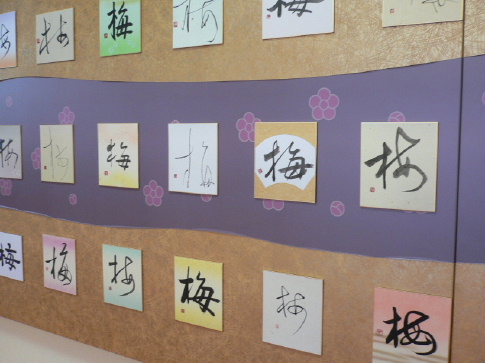 梅 梅 梅 梅 梅 梅
梅 梅 梅 梅 梅 梅
梅 梅 梅 梅 梅 梅